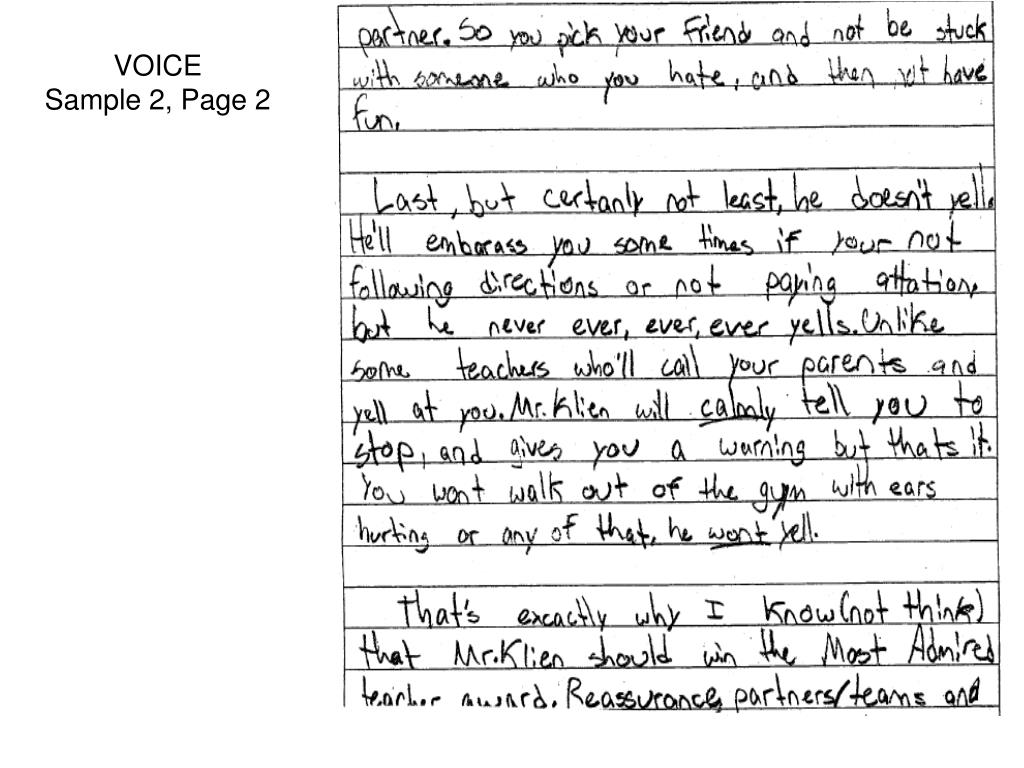 VOICE
Sample 2, Page 2
partner. So you pick your Friend and not be stuck
with someone who you hate, and then have
fun.
Last, but certanly not least, he doesn't yell.
He'll embarass you some times if your not
following directions or not paying attation,
but he never ever, ever, ever yells. Unlike
some teachers who'll call your parents and
yell at you. Mr. Klien will calmly tell you to
stop, and gives you a warning but thats it.
You wont walk out of the gym with ears
hurting or any of that, he wont yell.
That's excactly why I know (not think)
that Mr. Klien should win the Most Admired
teacher award. Reassurance, partners/teams and